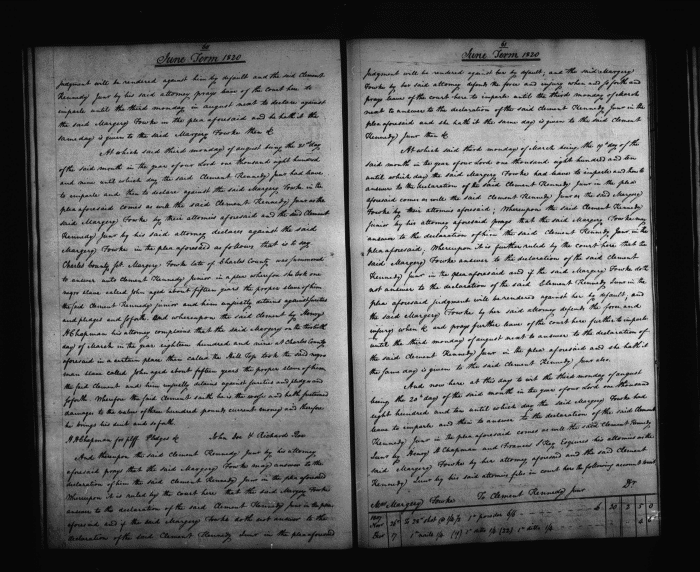 June Term 1820
judgment will be rendered against him by default and the said Clement
Kennedy Junr by his said attorney prays leave of the court here to
imparle until the third monday in august next to declare against
the said Margery Fowke in the plea aforesaid and he hath it the
same day is given to the said Margery Fowke then &c
At which said third monday of august being the 21st day
of the said month in the year of our Lord one thousand eight hundred
and nine until which day the said Clement Kennedy Junr had leave
to imparle and then to declare against the said Margery Fowke in the
plea aforesaid comes as well the said Clement Kennedy Junr as the
said Margery Fowke by their attornies aforesaid and the said Clement
Kennedy Junr by his said attorney declares against the said
Margery Fowke in the plea aforesaid as follows, that is to say
Charles County Sct. Margery Fowke late of Charles County was summoned
to answer unto Clement Kennedy Junior in a plea wherefore she took one
negro slave called John aged about fifteen years the proper slave of him
the said Clement Kennedy junior and him unjustly detains against sureties
and pledges and so forth. And whereupon the said Clement by Henry
H Chapman his attorney complains that the said Margery on the
day of March in the year eighteen hundred and nine at Charles County
aforesaid in a certain place there called the Hill Top took the said negro
man slave called John aged about fifteen years the proper slave of him
the said Clement and him unjustly detains against sureties and pledges and
so forth. Wherefore the said Clement saith he is the worse and hath sustained
damages to the value of three hundred pounds current money and therefore
he brings his suit and so forth
H H Chapman for plff Pledges &c John Doe & Richard Roe
And thereupon the said Clement Kennedy Junr by his attorney
aforesaid prays that the said Margery Fowke may answer to the
declaration of him the said Clement Kennedy Junr in the plea aforesaid
Whereupon it is ruled by the court here that the said Margery Fowke
answer to the declaration of the said Clement Kennedy Junr in the plea
aforesaid and if the said Margery Fowke doth not answer to the
declaration of the said Clement Kennedy Junr in the plea aforesaid
June Term 1820
judgment will be rendered against her by default; and the said Margery
Fowke by her said attorney defends the force and injury when and so forth and
prays leave of the court here to imparle until the third monday of March
next to answer to the declaration of the said Clement Kennedy Junr in the
plea aforesaid and she hath it the same day is given to the said Clement
Kennedy Junr then &c
At which said third monday of March being the 19th day of the
said month in the year of our Lord one thousand eight hundred and ten
until which day the said Margery Fowke had leave to imparle and then to
answer to the declaration of the said Clement Kennedy Junr in the plea
aforesaid comes as well the said Clement Kennedy Junr as the said Margery
Fowke by their attornies aforesaid; Whereupon the said Clement Kennedy
Junior by his attorney aforesaid prays that the said Margery Fowke may
answer to the declaration of him the said Clement Kennedy Junr in the
plea aforesaid; Whereupon it is further ruled by the court here that the
said Margery Fowke answer to the declaration of the said Clement
Kennedy Junr in the plea aforesaid and if the said Margery Fowke doth
not answer to the declaration of the said Clement Kennedy Junr in the
plea aforesaid judgment will be rendered against her by default; and
the said Margery Fowke by her said attorney defends the force and
injury when &c and prays further leave of the court here further to imparle
until the third monday of august next to answer to the declaration of
the said Clement Kennedy Junr in the plea aforesaid and she hath it
the same day is given to the said Clement Kennedy Junr also.
And now here at this day to wit the third monday of august
being the 20th day of the said month in the year of our Lord one thousand
eight hundred and ten until which day the said Margery Fowke had
leave to imparle and then to answer to the declaration of the said Clement
Kennedy Junr in the plea aforesaid comes as well the said Clement Kennedy
Junr by Henry H Chapman and Francis Esquires his attornies as the
said Margery Fowke by her attorney aforesaid and the said Clement
Kennedy Junr by his said attornies files in court here the following account to wit
Mrs Margery Fowke To Clement Kennedy Junr Dr